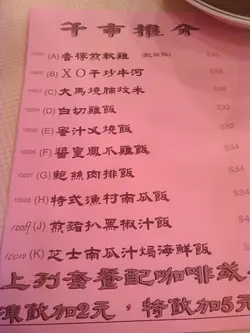 午市推介
10001 (A) 香檸煎軟雞 (配白飯) $35
10002 (B) XO干炒牛河
10003 (C) 大馬燒腩炆米
10004 (D) 白切雞飯
10005 (E) 蜜汁叉燒飯 $32
10006 (F) 醬皇鳳爪雞飯 $32
10007 (G) 鮑絲肉排飯 $34
10008 (H) 特式漁村南瓜飯 $34
10009 (J) 煎豬扒黑椒汁飯 $34
10010 (K) 芝士南瓜汁焗海鮮飯 $3
上列套餐配咖啡或
凍飲加2元,特飲加5元